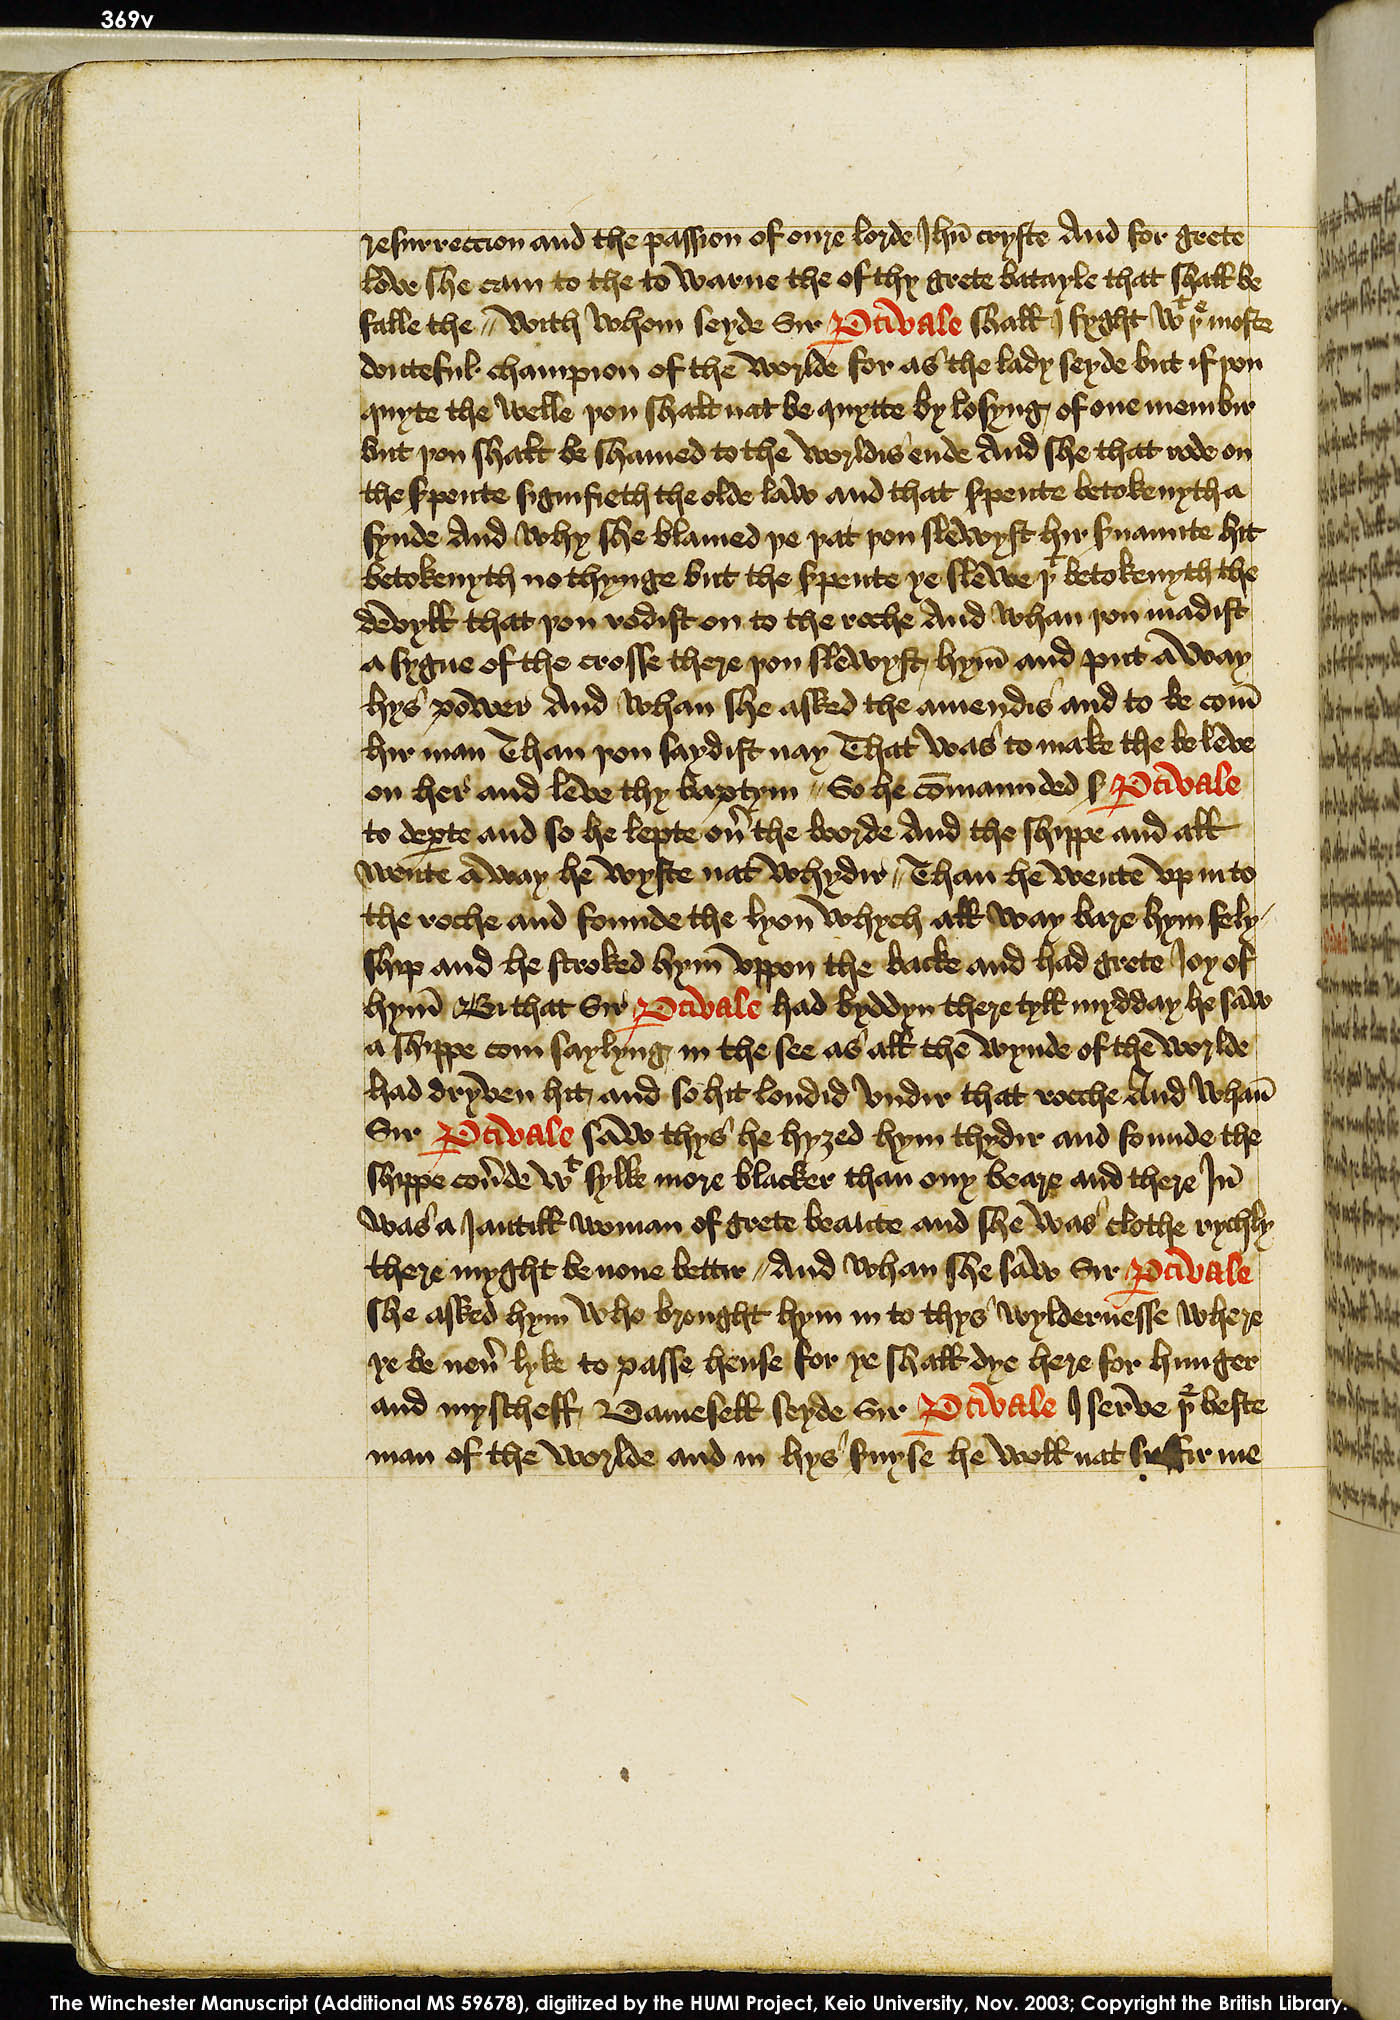 369v
resurreccion and the passion of oure lorde Jhū cryste And for grete
love she cam to the to warne the of thy grete batayle that shall be
falle the // with whom seyde Sir Pcivale shall I fyght wᵗ þᵉ moste
douteful champion of the worlde for as the lady seyde but if þou
quyte the welle þou shalt nat be quytte by losyng of one membir
but þou shalt be shamed to the worldis ende And she that rode on
the spente signifieth the olde law and that spente betokenyth a
fynde And why she blamed þe þat þou slewyst hir suaunte hit
betokenyth nothynge but the spente ye slewe þᵗ betokenyth the
devyll that þou rodist on to the roche And whan þou madist
a sygne of the crosse there þou slewyst hym and put away
hys power And whan she asked the amendis and to be com
hir man Than þou saydist nay That was to make the beleve
on her and leve thy baptym // So he cōmaunded s Pcivale
to depte and so he lepte oū the boorde And the shippe and all
wente away he wyste nat whydir // Than he wente up in to
the roche and founde the lyon whych all way bare hym fely
ship and he stroked hym uppon the backe and had grete Joy of
hym Bi that Sir Pcivale had byddyn there tyll mydday he saw
a shippe com saylyng in the see as all the wynde of the worlde
had dryven hit and so hit londid undir that rocche And whan
Sir Pcivale saw thys he hyȝed hym thydir and founde the
shippe coūde wᵗ sylke more blacker than ony beare and there In
was a Jantill woman of grete beaute and she was clothe rychly
there myght be none bettir // And whan she saw Sir Pcivale
she asked hym who brought hym in to thys wyldernesse where
ye be neū lyke to passe hense for ye shall dye here for hunger
and myscheff Damesell seyde Sir Pcivale I serve þᵉ beste
man of the worlde and in hys suyse he woll nat suffir me
The Winchester Manuscript (Additional MS 59678), digitized by the HUMI Project, Keio University, Nov. 2003; Copyright the British Library.